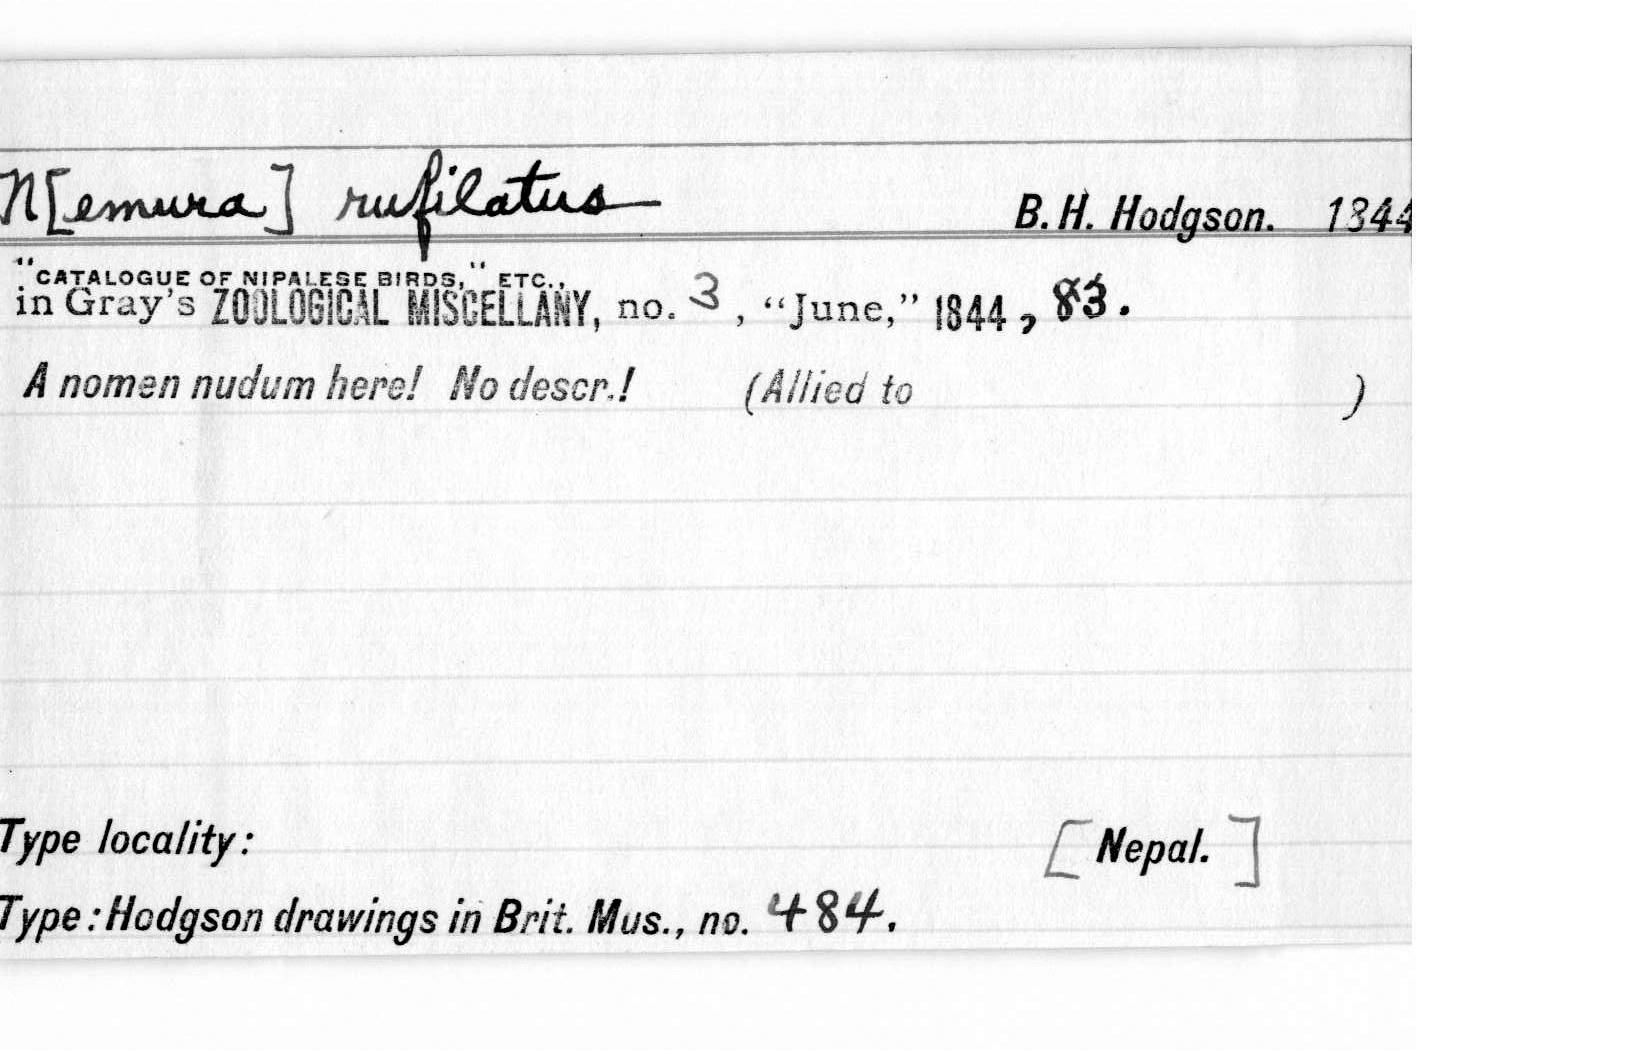 N[emura] rufilatus B. H. Hodgson. 1844
"CATALOGUE OF NIPALESE BIRDS," ETC.,
in Gray's ZOOLOGICAL MISCELLANY, no. 3, "June," 1844, 83.
A nomen nudum here! No descr.! (Allied to )
Type locality: [Nepal.]
Type: Hodgson drawings in Brit. Mus., no. 484.